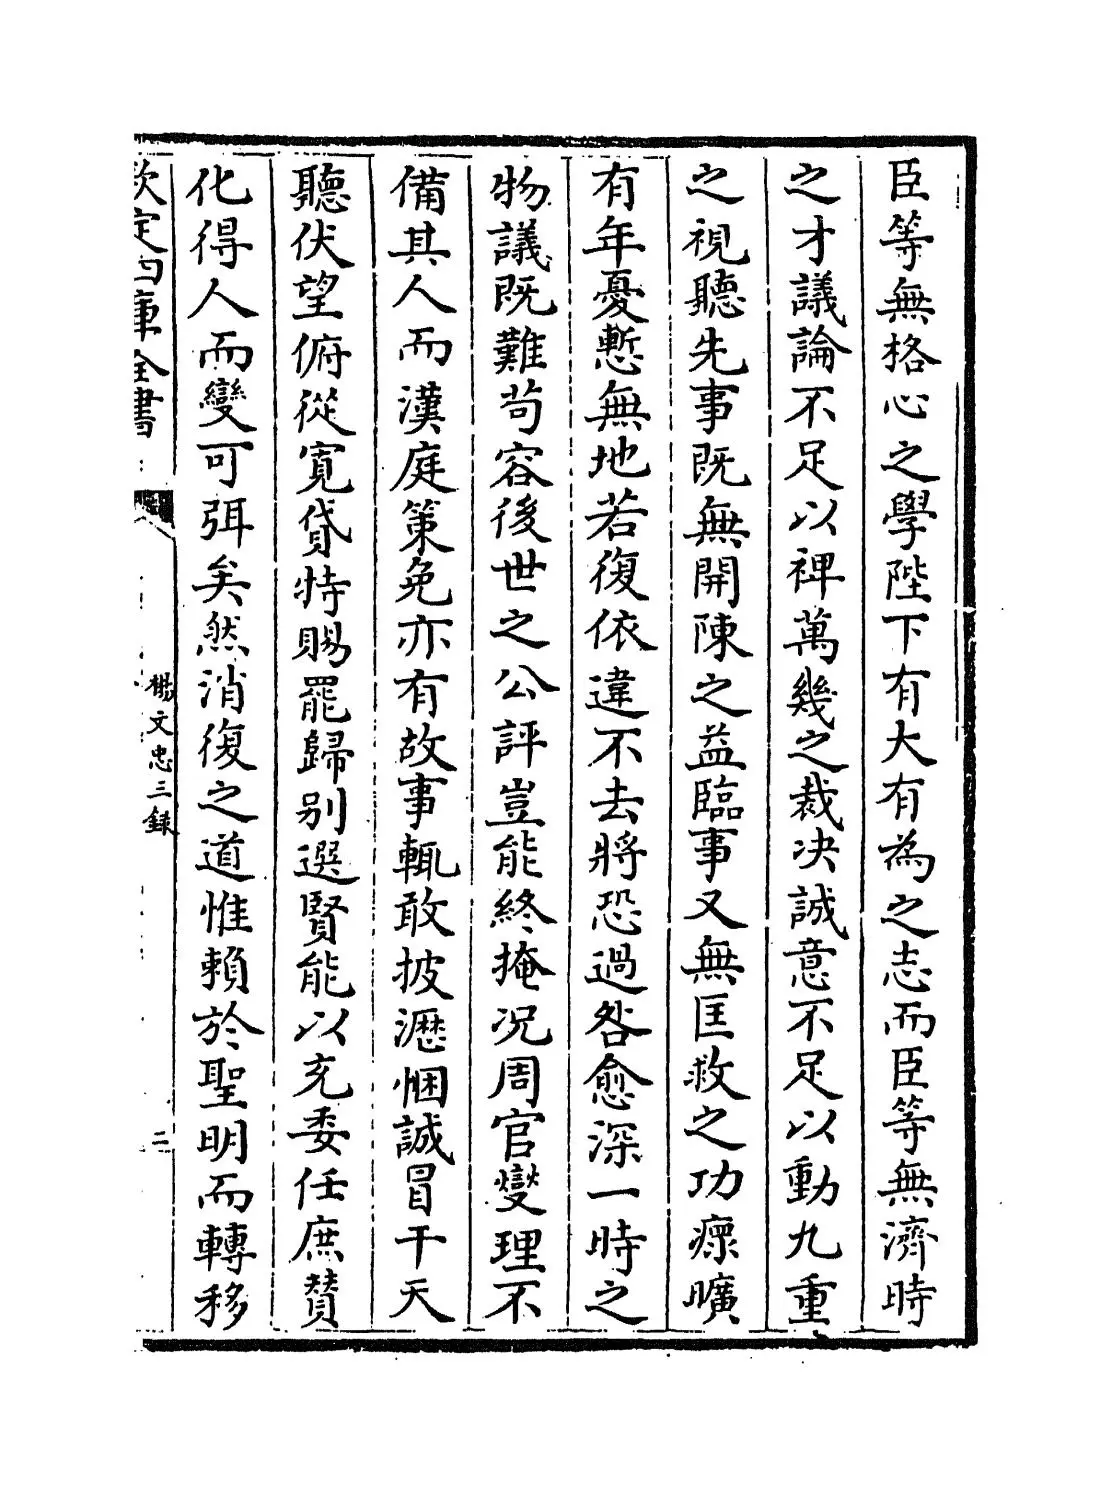 臣等無格心之學陛下有大有為之志而臣等無濟時
之才議論不足以裨萬幾之裁决誠意不足以動九重
之視聽先事既無開陳之益臨事又無匡救之功瘝曠
有年憂慙無地若復依違不去將恐過咎愈深一時之
物議既難苟容後世之公評豈能終掩况周官燮理不
備其人而漢庭策免亦有故事輒敢披瀝悃誠冒干天
聽伏望俯從寛貸特賜罷歸别選賢能以充委任庶賛
化得人而變可弭矣然消復之道惟頼於聖明而轉移
欽定四庫全書
楊文忠三録
二